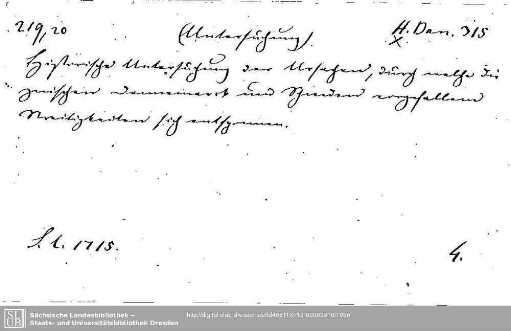 219,20 (Untersuchung). H. Dan. 315
x
Historische Untersuchung der Ursachen, durch welche die
zwischen Dennemarck und Schweden vorgefallene
Streitigkeiten sich entsponnen.
S. l. 1715. 4.
SLUB
Sächsische Landesbibliothek –
Staats- und Universitätsbibliothek Dresden